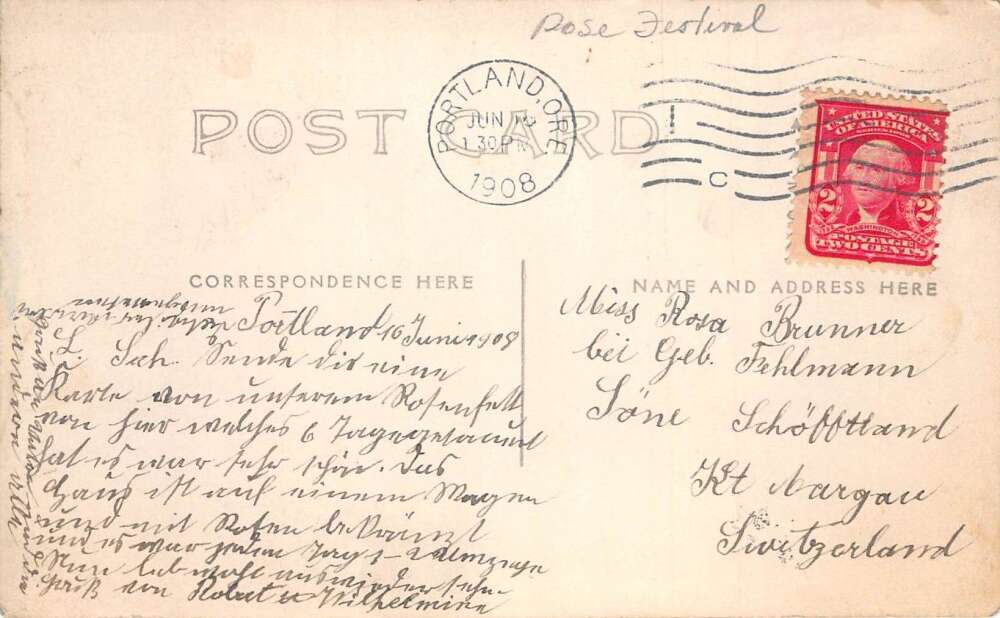 Rose Festival
POST CARD
PORTLAND, ORE
JUN 16
1 30 PM
1908
C
UNITED STATES
OF AMERICA
2 2
WASHINGTON
POSTAGE
TWO CENTS
CORRESPONDENCE HERE
Portland 16 Juni 1908
L. Sch. Sende dir eine
Karte von unserem Rosenfest
von hier welches 6 Tage gedauert
hat es war sehr schön. Das
Haus ist auf einem Wagen
und mit Rosen bekränzt
und es war jeden Tag 1-2 Umzuge
Nun leb wohl auf wiedersehn
Gruß von Robert u Wilhelmine
NAME AND ADDRESS HERE
Miss Rosa Brunner
bei Geb. Fehlmann
Söne Schöfftland
Kt Aargau
Switzerland